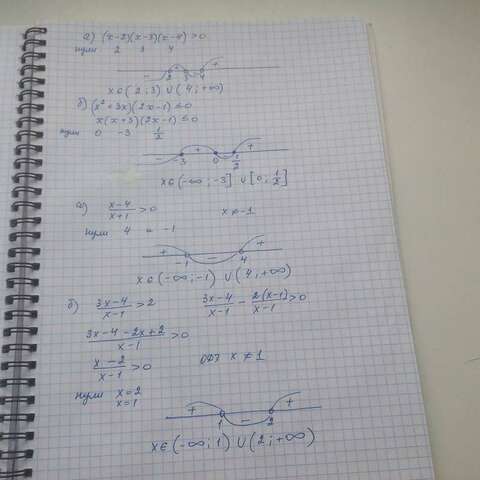 а) (x-2)(x-3)(x-4)>0
нули 2 3 4
- + - +
2 3 4
x∈(2;3)∪(4;+∞)
б) (x²+3x)(2x-1)≤0
x(x+3)(2x-1)≤0
нули 0 -3 1/2
- + - +
-3 0 1/2
x∈(-∞;-3]∪[0;1/2]
а) (x-4)/(x+1)>0 x≠-1
нули 4 и -1
+ - +
-1 4
x∈(-∞;-1)∪(4;+∞)
б) (3x-4)/(x-1)>2 (3x-4)/(x-1) - 2(x-1)/(x-1)>0
(3x-4-2x+2)/(x-1)>0
(x-2)/(x-1)>0 ОДЗ x≠1
нули x=2
x=1
+ - +
1 2
x∈(-∞;1)∪(2;+∞)